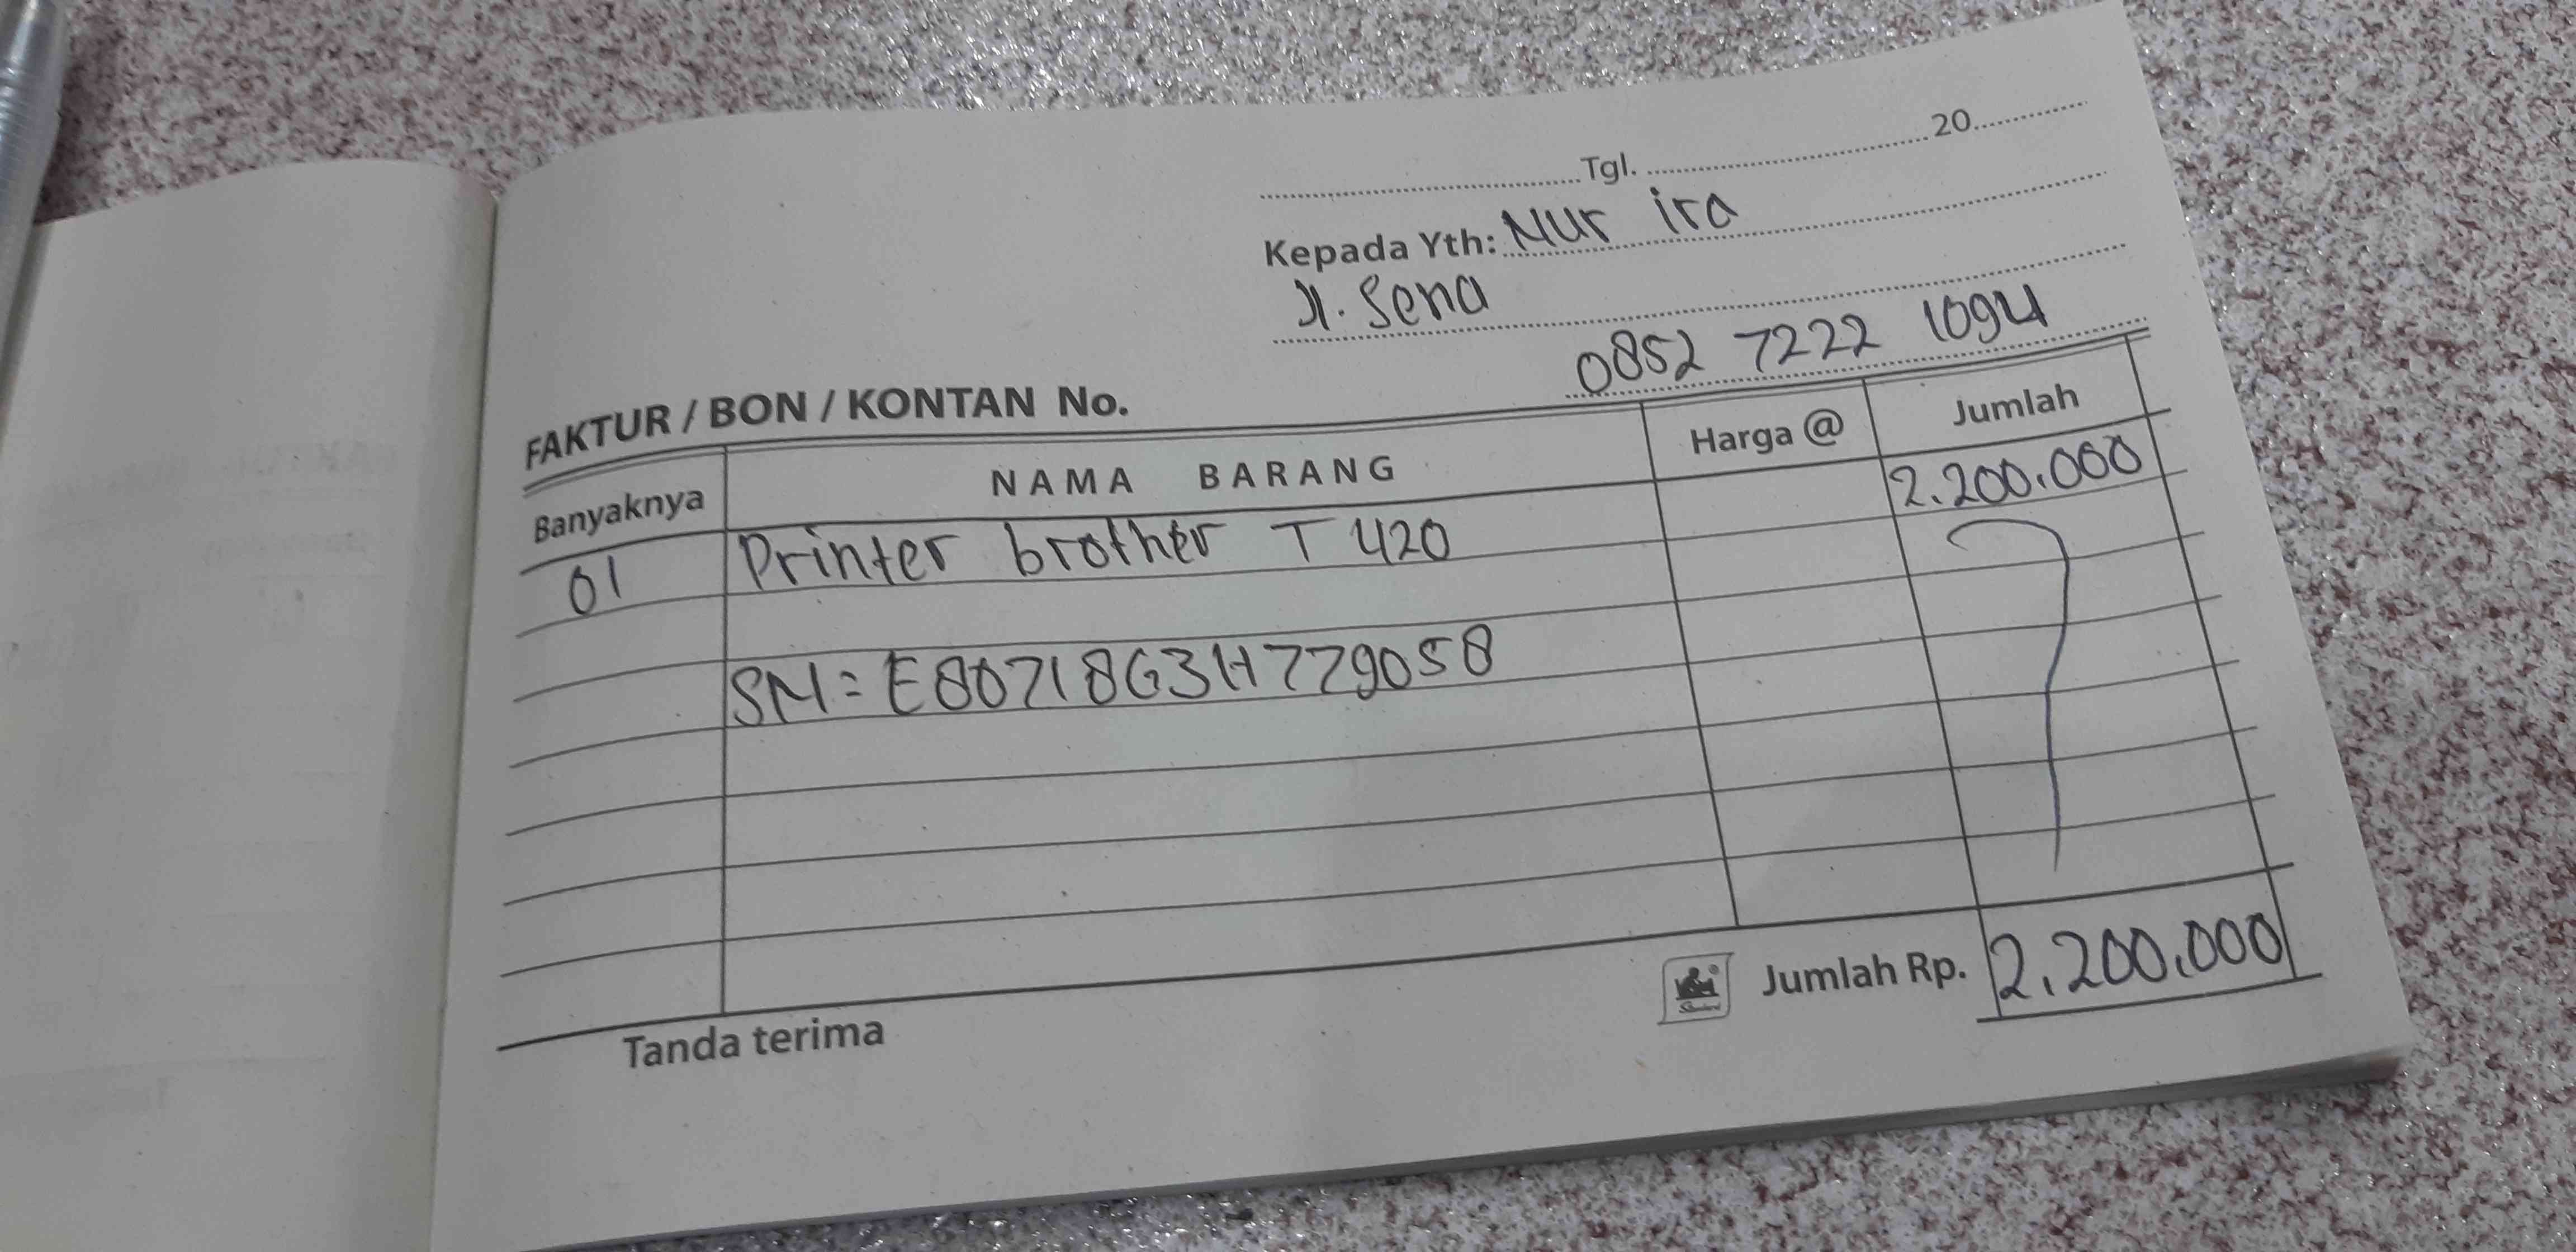 Tgl. 20
Kepada Yth: Nur ira
Jl. Sena
0852 7222 1094
FAKTUR / BON / KONTAN No.
Banyaknya NAMA BARANG Harga @ Jumlah
01 Printer brother T 420 2.200.000
SN = E80718G3H779058
Jumlah Rp. 2.200.000
Tanda terima